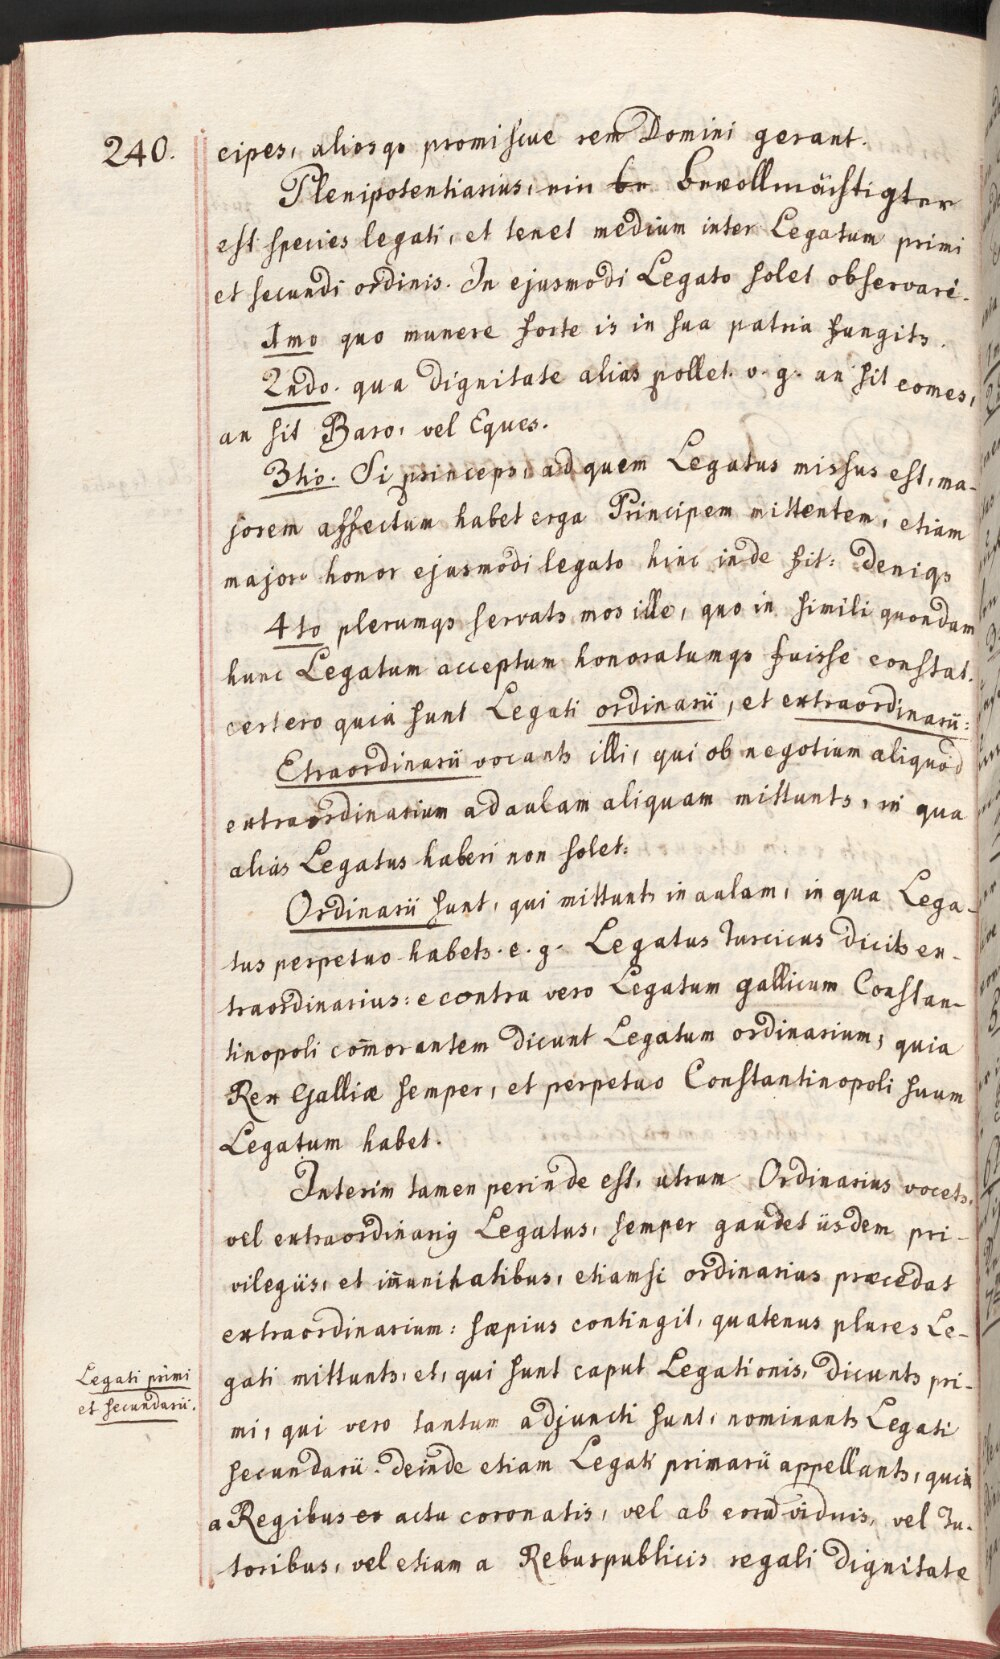 240.
cipes, aliosqs promiscue rem Domini gerant.
Plenipotentiarius, ein be bevollmächtigter
est species legati, et tenet medium inter Legatum primi
et secundi ordinis. In ejusmodi Legato solet observari.
1mo quo munere forte is in sua patria fungitr.
2ndo. qua dignitate alias pollet. v. g. an sit comes,
an sit Baro, vel Eques.
3tio. Si princeps, ad quem Legatus missus est, ma-
jorem affectum habet erga Principem mittentem, etiam
major honor ejusmodi legato hinc inde fit: deniqs
4to plerumqs servatr mos ille, quo in simili quondam
hunc Legatum acceptum honoratumqs fuisse constat.
certero quia sunt Legati ordinarii, et extraordinarii:
Etraordinarii vocantr illi, qui ob negotium aliquod
extraordinarium ad aulam aliquam mittuntr, in qua
alias Legatus haberi non solet:
Ordinarii sunt, qui mittuntr in aulam, in qua Lega-
tus perpetuo habetr. e. g. Legatus Turcicus dicitr ex-
traordinarius: e contra vero Legatum gallicum Constan-
tinopoli com̄orantem dicunt Legatum ordinarium, quia
Rex Galliæ semper, et perpetuo Constantinopoli suum
Legatum habet.
Interim tamen perinde est, utrum Ordinarius vocetr,
vel extraordinarius Legatus, semper gaudet iisdem pri-
vilegiis, et im̄unitatibus, etiamsi ordinarius præcedat
extraordinarium: sæpius contingit, quatenus plures Le-
gati mittuntr, et, qui sunt caput Legationis, dicuntr pri-
Legati primi
et secundarii.
mi, qui vero tantum adjuncti sunt, nominantr Legati
secundarii. deinde etiam Legati primarii appellantr, quia
a Regibus actu coronatis, vel ab viduis, vel Tu-
toribus, vel etiam a Rebuspublicis regali dignitate